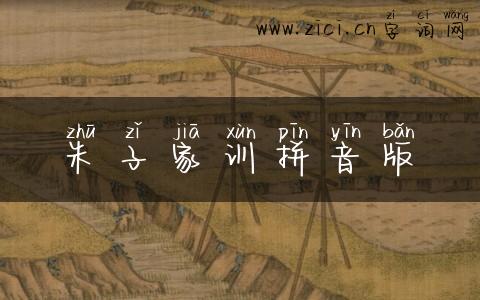 zì cí wǎng
www.zici.cn字词网
zhū zǐ jiā xùn pīn yīn bǎn
朱子家训拼音版